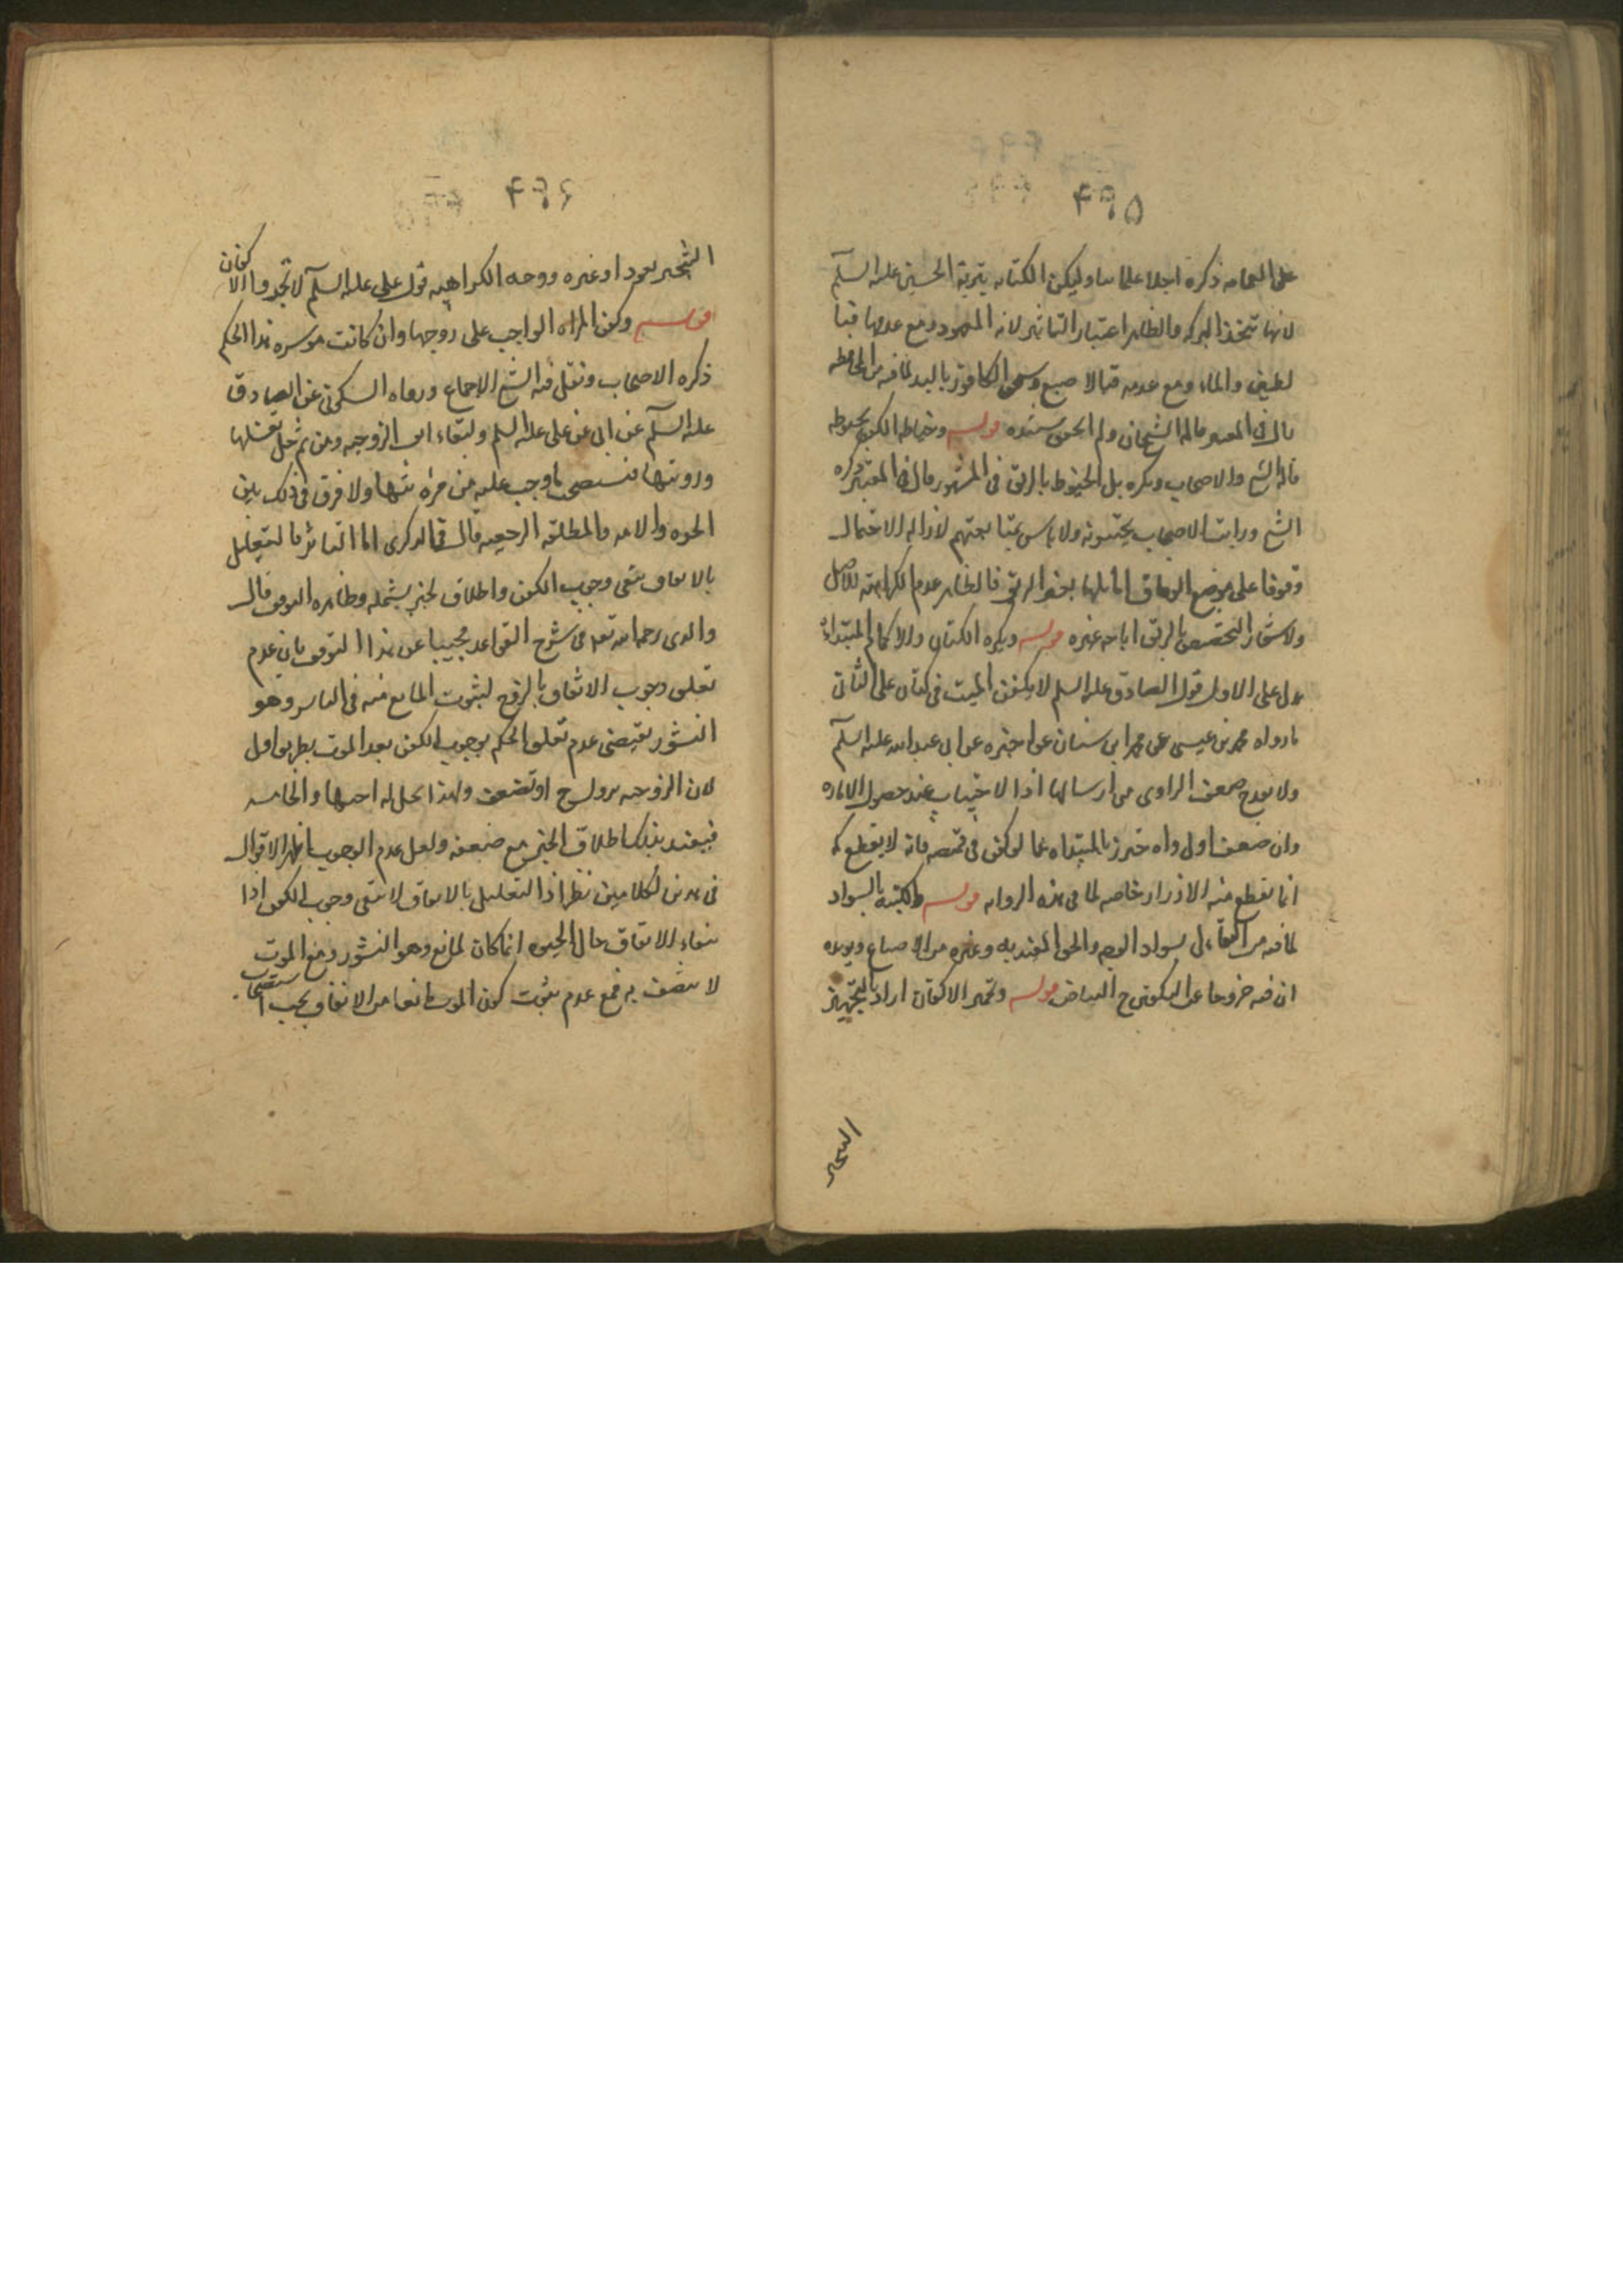 ۴۹۵
على العمامه ذكره اجلا علمائنا وليكن الكتابه بتربة الحسين عليه السلم
لانها تتخذ للبركه والظاهر اعتبار التاثير لانه المعهود ومع عدمها فبا
لطين والماء ومع عدمه فبالاصبع وسحق الكافور باليد لمافيه من المحافظه
قال في المعتبر قاله الشيخان ولم اتحقق سنده قوله وخياطه الكفن بخيوطه
قاله الشيخ والاصحاب ويكره بل الخيوط بالريق في المشهور قال في المعتبر ذكره
الشيخ ورايت الاصحاب يجتنبونه ولا باس بمتابعتهم لازاله الاحتمال
وقوفا على موضع الوفاق اما بلها بغير الريق فالظاهر عدم الكراهة للاصل
ولاشعار التخصيص بالريق اباحه غيره قوله ويكره الكتان والاكمام المبتداة
يدل على الاول قول الصادق عليه السلم لا يكفن الميت في كتان وعلى الثاني
مارواه محمد بن عيسى عن محمد ابن سنان عن اخبره عن ابي عبدالله عليه السلم
ولا يقدح ضعف الراوي من ارسالها اذا لاجتناب عند حصول الاماره
وان ضعف اولى واه حترز بالمبتداه عما لو كفن في قميصه فانه لا يقطع كمه
انما يقطع منه الازرار خاصه لما في هذه الروايه قوله والكتبة بالسواد
لما فيه من التفاءل بسواد الوجه والحق المفيد به وغيره من الاصباغ ويؤيده
ان فيه خروجا عن التكفين في البياض قوله وتجمير الاكفان اراد بالتجمير
التبخير
۴۹۶
التبخير بعود او غيره ووجه الكراهيه قول علي عليه السلم لا تجمروا الاكفان
قوله وكفن المراه الواجب على زوجها وان كانت موسره هذا الحكم
ذكره الاصحاب ونقل فيه الشيخ الاجماع ورواه السكوني عن الصادق
عليه السلم عن ابيه عن علي عليه السلم ولبقاء اثر الزوجيه ومن ثم حل تغسيلها
ورويتها فيستصحب ماوجب عليه من مؤنتها ولا فرق في ذلك بين
الحره والامه والمطلقه الرجعيه قال في الذكرى اما الناشز فالتعليل
بالانفاق ينفي وجوب الكفن واطلاق الخبر يشمله وظاهره التوقف قال
والدي رحمه الله تعالى في شرح القواعد مجيبا عن هذا التوقف بان عدم
تعلق وجوب الانفاق بالزوج لثبوت المانع منه في الناشز وهو
النشوز يقتضي عدم تعلق الحكم بوجوب الكفن بعد الموت بطريق اولى
لان الزوجيه تزول ح او تضعف ولهذا تحل له اختها والخامسه
فيقيد بذلك اطلاق الخبر مع ضعفه ولعل عدم الوجوب اظهر الاقوال
في هذين الكلامين نظر اذ التعليل بالانفاق لا ينفي وجوب الكفن اذا
نتفاء الانفاق حال الحيوه انما كان لمانع وهو النشوز ومع الموت
لا يتصف به فمع عدم ثبوت كون الموت مانعا من الانفاق يجب استصحاب